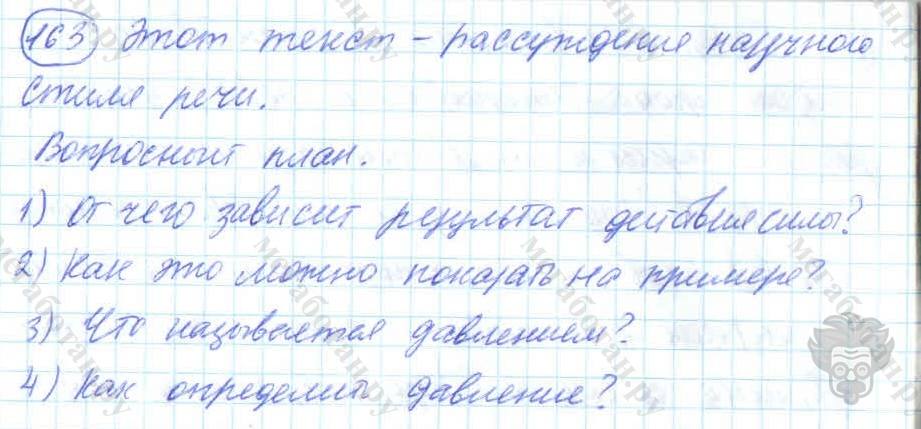 163 Этот текст – рассуждение научного
стиля речи.
Вопросный план.
1) От чего зависит результат действия силы?
2) Как это можно показать на примере?
3) Что называется давлением?
4) Как определить давление?
мегаботан.ру